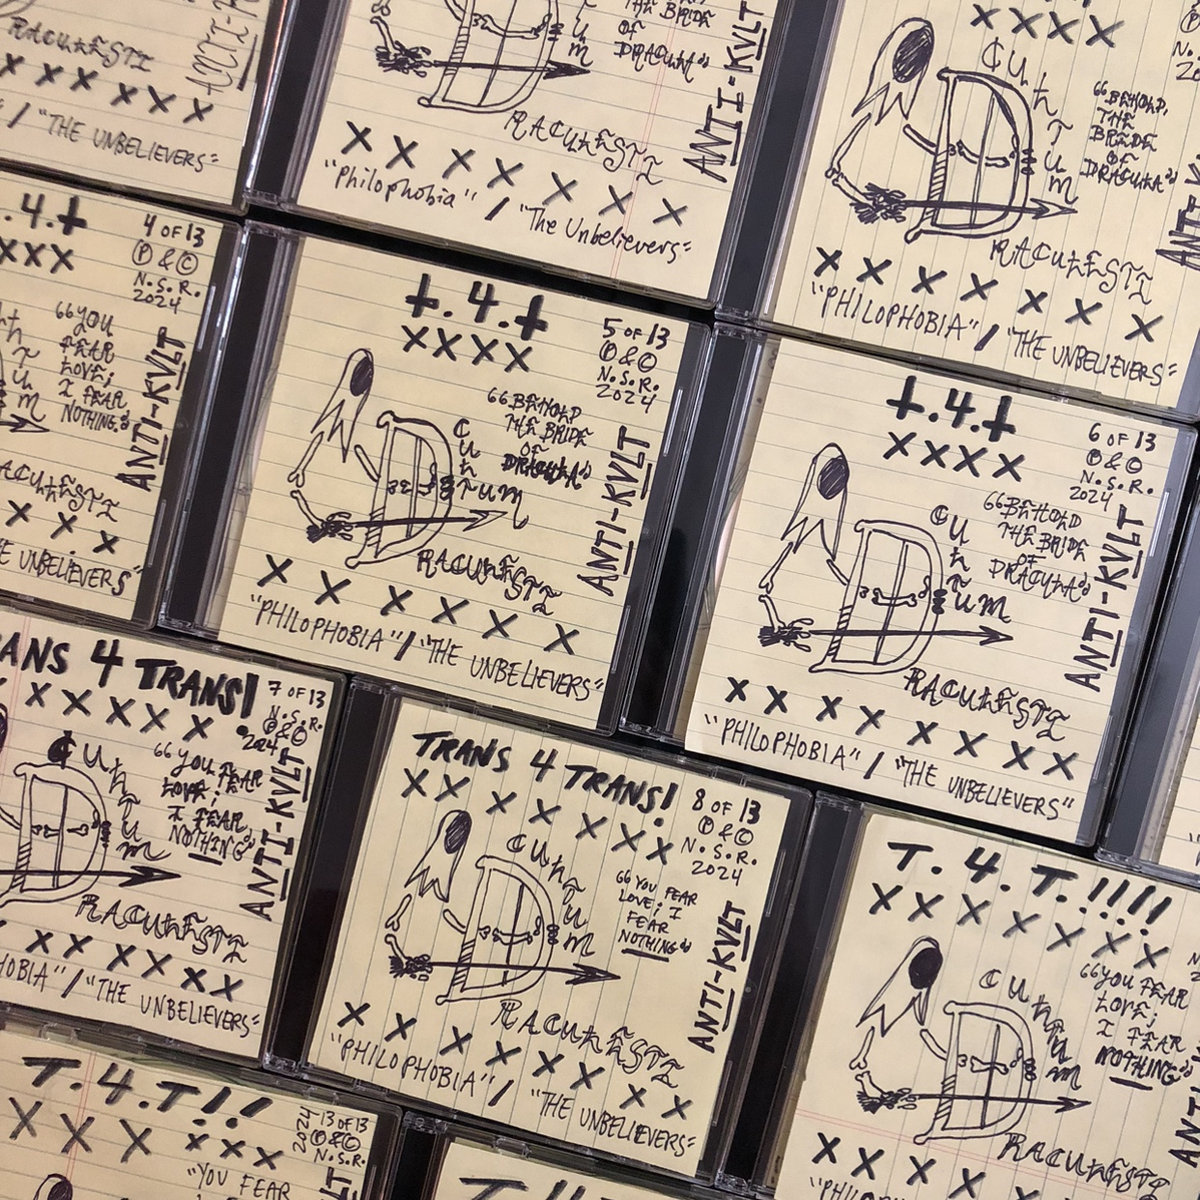 RACULESTI
X X X X X X
/ "THE UNBELIEVERS"
THE BRIDE
OF
DRACULA"
ANTI-KVLT
RACULESTI
X X X X X X X
"Philophobia" / "The Unbelievers"
XXXX
Cultum
"BEHOLD,
THE
BRIDE
OF
DRACULA"
RACULESTI
X X X X X X X
"PHILOPHOBIA" / "THE UNBELIEVERS"
.4.t
XXX
4 OF 13
Ⓟ & ©
N.S.R.
2024
"YOU
FEAR
LOVE;
I FEAR
NOTHING."
ANTI-KVLT
X X X
THE UNBELIEVERS"
t.4.t
XXXX
5 OF 13
Ⓟ & ©
N.S.R.
2024
"BEHOLD
THE BRIDE
OF
DRACULA"
Cultum
ANTI-KVLT
RACULESTI
X X X X X X
"PHILOPHOBIA" / "THE UNBELIEVERS"
t.4.t
XXXX
6 OF 13
Ⓟ & ©
N.S.R.
2024
"BEHOLD
THE BRIDE
OF
DRACULA"
Cultum
ANTI-KVLT
RACULESTI
X X X X X X X X
"PHILOPHOBIA" / "THE UNBELIEVERS"
ANS 4 TRANS!
X X X X X
7 OF 13
N.S.R.
Ⓟ & ©
2024
Cultum
"YOU FEAR
LOVE;
I FEAR
NOTHING"
ANTI-KVLT
RACULESTI
X X X X X X
HOBIA" / "THE UNBELIEVERS"
TRANS 4 TRANS!
X X X X X X X
8 OF 13
Ⓟ & ©
N.S.R.
2024
Cultum
"YOU FEAR
LOVE; I
FEAR
NOTHING"
ANTI-KVLT
RACULESTI
X X X X X X X X
"PHILOPHOBIA" / "THE UNBELIEVERS"
T.4.T.!!!!
X X X X X X X
Cultum
"YOU FEAR
LOVE;
I FEAR
NOTHING"
RACULESTI
X X X X
T.4.T!!
X X X X X X X
2024
13 OF 13
Ⓟ & ©
N.S.R.
"YOU FEAR